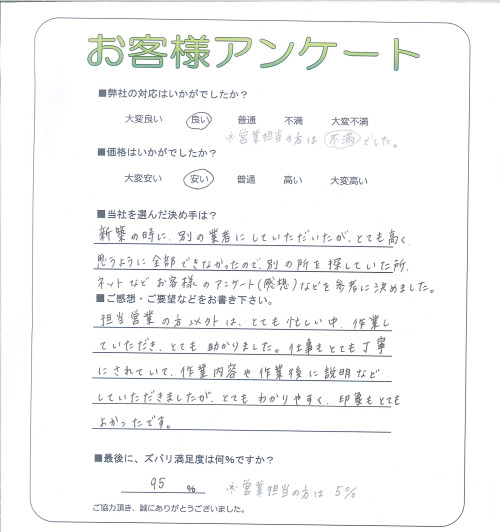 お客様アンケート
■弊社の対応はいかがでしたか？
大変良い 良い 普通 不満 大変不満
※営業担当の方は 不満 でした。
■価格はいかがでしたか？
大変安い 安い 普通 高い 大変高い
■当社を選んだ決め手は？
新築の時に、別の業者にしていただいたが、とても高く、
思うように全部できなかったので、別の所を探していた所、
ネットなどお客様のアンケート(感想)などを参考に決めました。
■ご感想・ご要望などをお書き下さい。
担当営業の方以外は、とても忙しい中、作業し
ていただき、とても助かりました。仕事もとても丁寧
にされていて、作業内容や作業後に説明など
していただきましたが、とてもわかりやすく、印象もとても
よかったです。
■最後に、ズバリ満足度は何％ですか？
95 % ※営業担当の方は 5%
ご協力頂き、誠にありがとうございました。